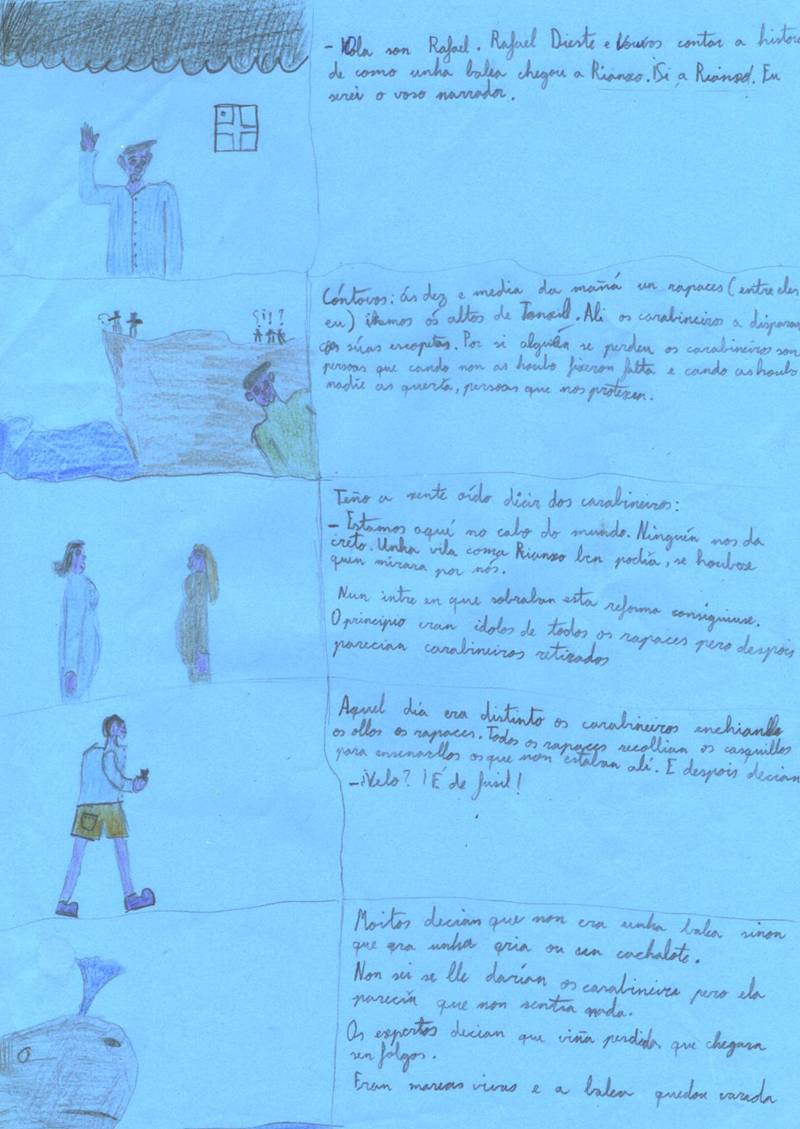 - Hola son Rafael. Rafael Dieste e vouvos contar a historia
de como unha balea chegou a Rianxo. ¡Si, a Rianxo! Eu
serei o voso narrador.
¿¡!?
Cóntovos: ás dez e media da mañá un rapaces (entre eles
eu) iamos ós altos de Tanxil. Alí os carabineiros a disparar
cas súas escopetas. Por si alguién se perdeu os carabineiros son
persoas que cando non as houbo fixeron falta e cando as houbo
nadie as quería, persoas que nos protexen.
Teño a xente oído dicir dos carabineiros:
- Estamos aquí no cabo do mundo. Ninguén nos da
creto. Unha vila coma Rianxo ben podía, se houbese
quen mirara por nós.
Nun intre en que sobraban esta reforma conseguiuse.
O principio eran idolos de todos os rapaces pero despois
parecían carabineiros retirados
Aquel día era distinto os carabineiros enchianlle
os ollos os rapaces. Todos os rapaces recollían os casquillos
para ensinarllos os que non estaban alí. E despois decían
- ¡Velo? ¡É de fusil!
Moitos decían que non era unha balea sinon
que era unha cría ou un cachalote.
Non sei se lle darían os carabineiros pero ela
parecía que non sentía nada.
Os expertos decían que viña perdida que chegara
sen folgos.
Eran mareas vivas e a balea quedou varada